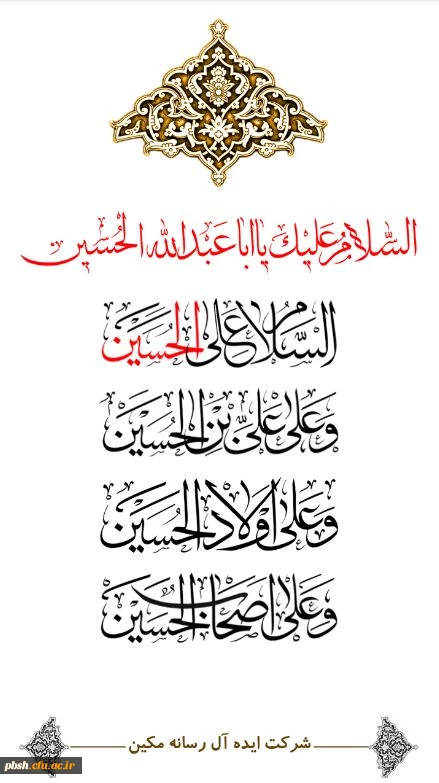 السَّلامُ عَلَيْكَ يا ابا عَبدالله الحُسَين
السَّلامُ عَلَى الحُسَيْن
وَعَلى عَلىِّ بْنِ الحُسَيْن
وَعَلى اَوْلادِ الحُسَيْن
وَعَلى اَصحابِ الحُسَين
شرکت ایده آل رسانه مکین
pbsh.cfu.ac.ir